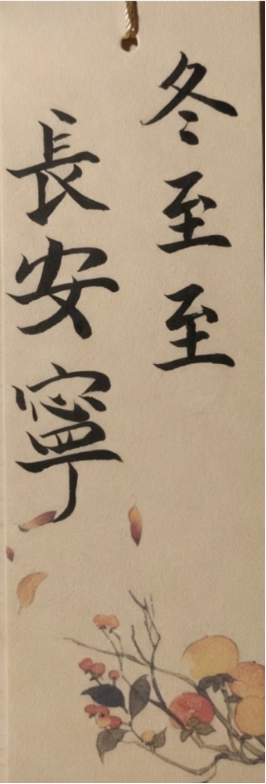 冬至至
長安寧